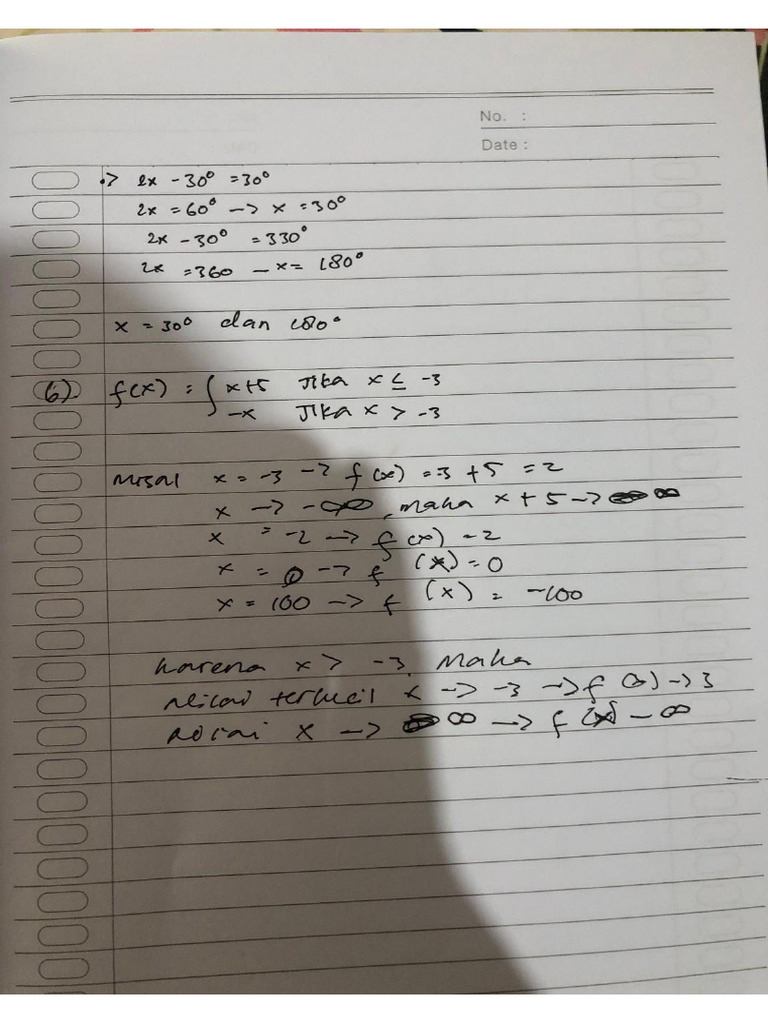 No. :
Date :
•> 2x - 30° = 30°
2x = 60° -> x = 30°
2x - 30° = 330°
2x = 360 - x = 180°
x = 30° dan 180°
6). f(x) = { x+5 Jika x ≤ -3
-x Jika x > -3
Misal x = -3 -> f(x) = -3 + 5 = 2
x -> -∞, maka x + 5 -> ∞
x = -2 -> f(x) = 2
x = 0 -> f(x) = 0
x = 100 -> f(x) = -100
karena x > -3. Maka
Nilai terkecil x -> -3 -> f(x) -> 3
nilai x -> ∞ -> f(x) - ∞